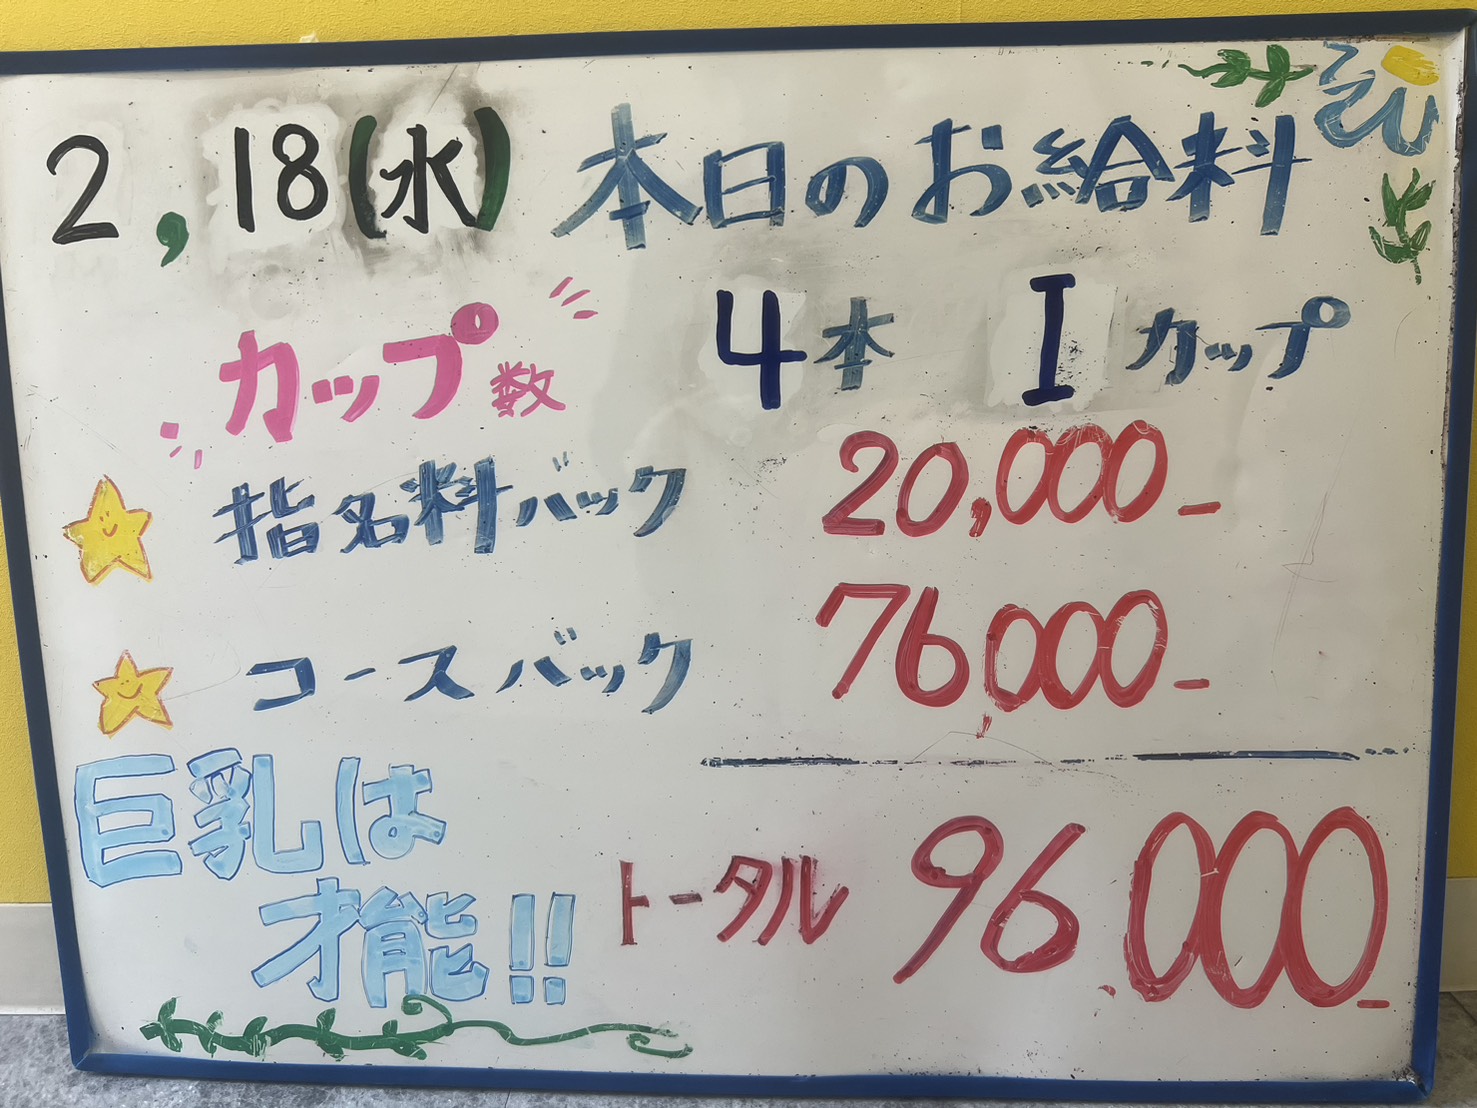 2,18(水) 本日のお給料
カップ数 4本 Iカップ
指名料バック 20,000-
コースバック 76,000-
巨乳は
才能!!
トータル 96,000-